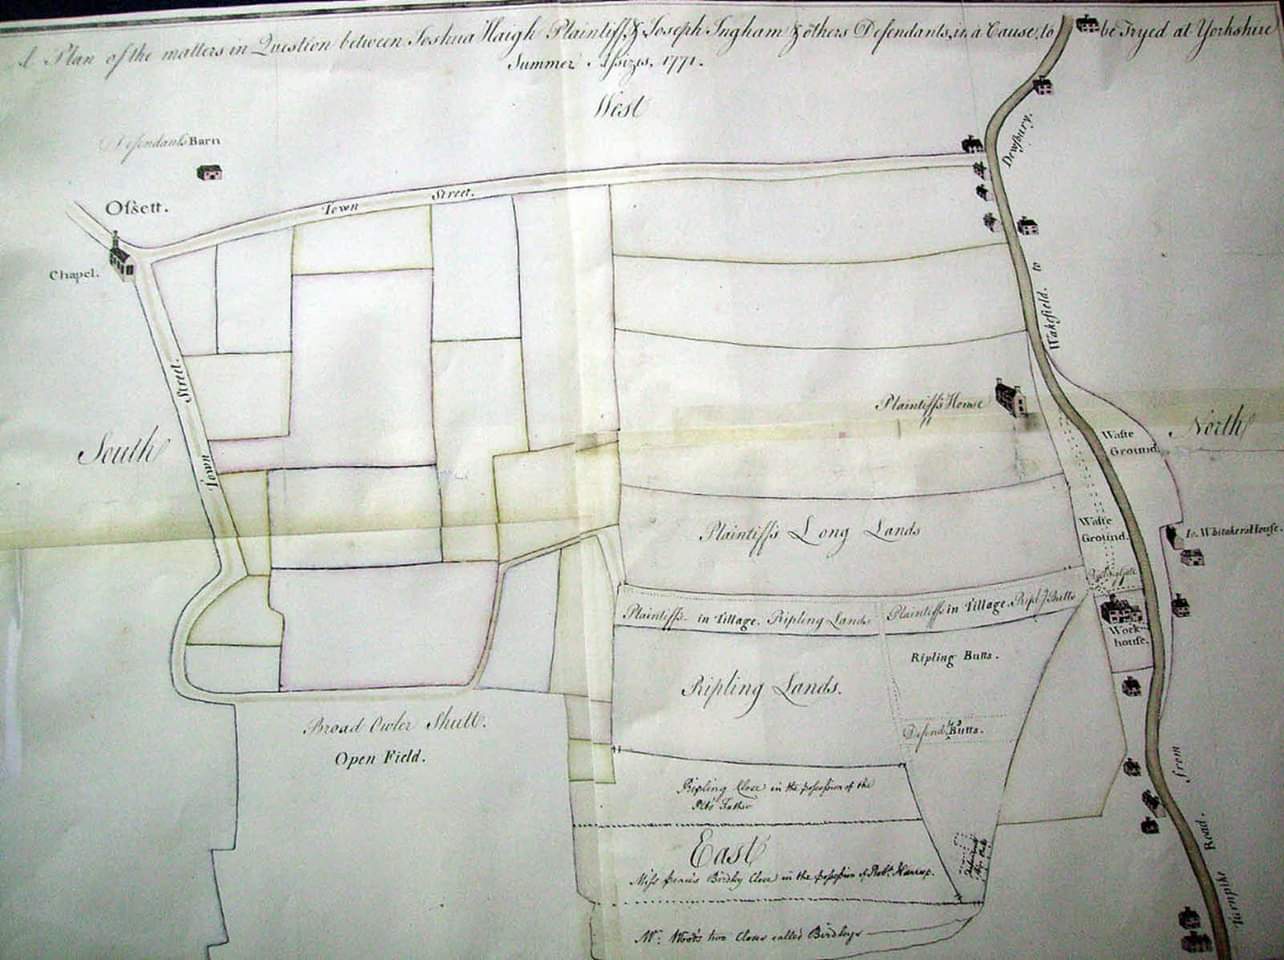 A Plan of the matters in Question between Joshua Haigh Plaintiff & Joseph Ingham & others Defendants, in a Cause, to be Tryed at Yorkshire
Summer Aſsizes. 1771.
West
Defendants Barn
Oſsett.
Chapel.
Town Street.
Dewſbury.
Wakefield. to
Town Street.
South
Plaintiffs House
Waſte
Ground.
North
Plaintiffs Long Lands
Waſte
Ground.
Jo. Whitakers House.
Plaintiffs in Tillage. Ripling Lands
Plaintiffs in Tillage. Butts
Work
house.
Ripling Butts.
Ripling Lands.
Broad Owler Shutt.
Open Field.
Defend.ts Butts.
Ripling Close in the poſseſsion of the
Father
East
Miſs Birdley Close in the poſseſsion of Rob.t
Mr. Woods two Closes called Birdleys
Turnpike Road. from